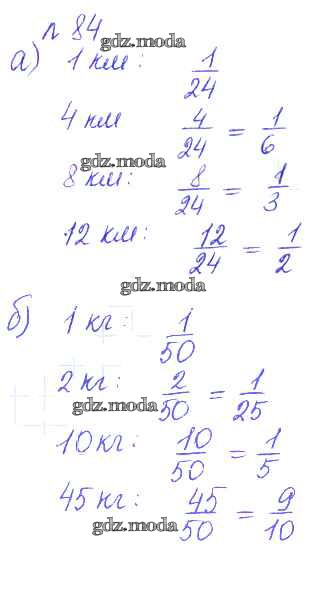 № 84
gdz.moda
а) 1 км: 1/24
4 км 4/24 = 1/6
gdz.moda
8 км: 8/24 = 1/3
12 км: 12/24 = 1/2
gdz.moda
б) 1 кг: 1/50
2 кг: 2/50 = 1/25
gdz.moda
10 кг: 10/50 = 1/5
45 кг: 45/50 = 9/10
gdz.moda